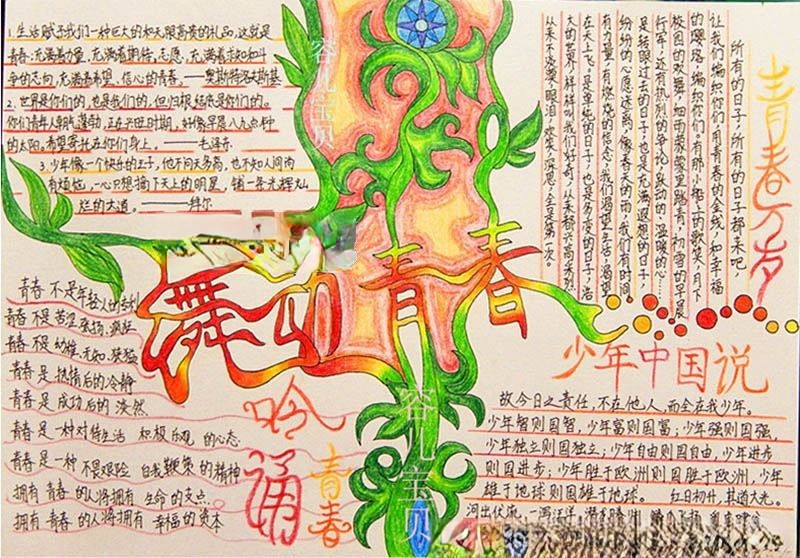 1.生活赋予我们一种巨大的和无限高贵的礼品,这就是
青春:充满着力量,充满着期待,志愿,充满着求知和斗
争的志向,充满着希望、信心的青春。——奥斯特洛夫斯基
2、世界是你们的,也是我们的,但归根结底是你们的。
你们青年人朝气蓬勃,正在兴旺时期,好像早晨八九点钟
的太阳。希望寄托在你们身上。——毛泽东
3.少年像一个快乐的王子,他不问天多高,也不知人间尚
有烦恼,一心只想摘下天上的明星,铺一条光辉灿
烂的大道。——拜尔
青春万岁
所有的日子,所有的日子都来吧,
让我们编织你们,用青春的金线,和幸福
的璎珞,编织你们。有那小船上的歌笑,月下
校园的欢舞,细雨蒙蒙里踏青,初雪的早晨
行军,还有热烈的争论,跃动的、温暖的心……
是转眼过去的日子,也是充满遐想的日子,
纷纷的心愿迷离,像春天的雨,我们有时间,
有力量,有燃烧的信念,我们渴望生活,渴望
在天上飞。是单纯的日子,也是多变的日子,浩
大的世界,样样叫我们好奇,从来都兴高采烈,
从来不淡漠,眼泪,欢笑,深思,全是第一次。
舞动青春
青春 不是年轻人的专利
青春 不是 苦涩、张扬、疯狂
青春 不是 幼稚、无知、莽撞
青春 是 热情后的冷静
青春 是 成功后的 淡然
青春 是 一种对待生活 积极乐观 的心态
青春 是 一种 不畏艰险 自我鞭策 的精神
拥有 青春 的人将拥有 生命 的支点
拥有 青春 的人将拥有 幸福 的资本
吟诵
青春
少年中国说
故今日之责任,不在他人,而全在我少年。
少年智则国智,少年富则国富;少年强则国强,
少年独立则国独立;少年自由则国自由,少年进步
则国进步;少年胜于欧洲则国胜于欧洲,少年
雄于地球则国雄于地球。 红日初升,其道大光。
河出伏流,一泻汪洋。
容儿宝贝
容儿宝贝